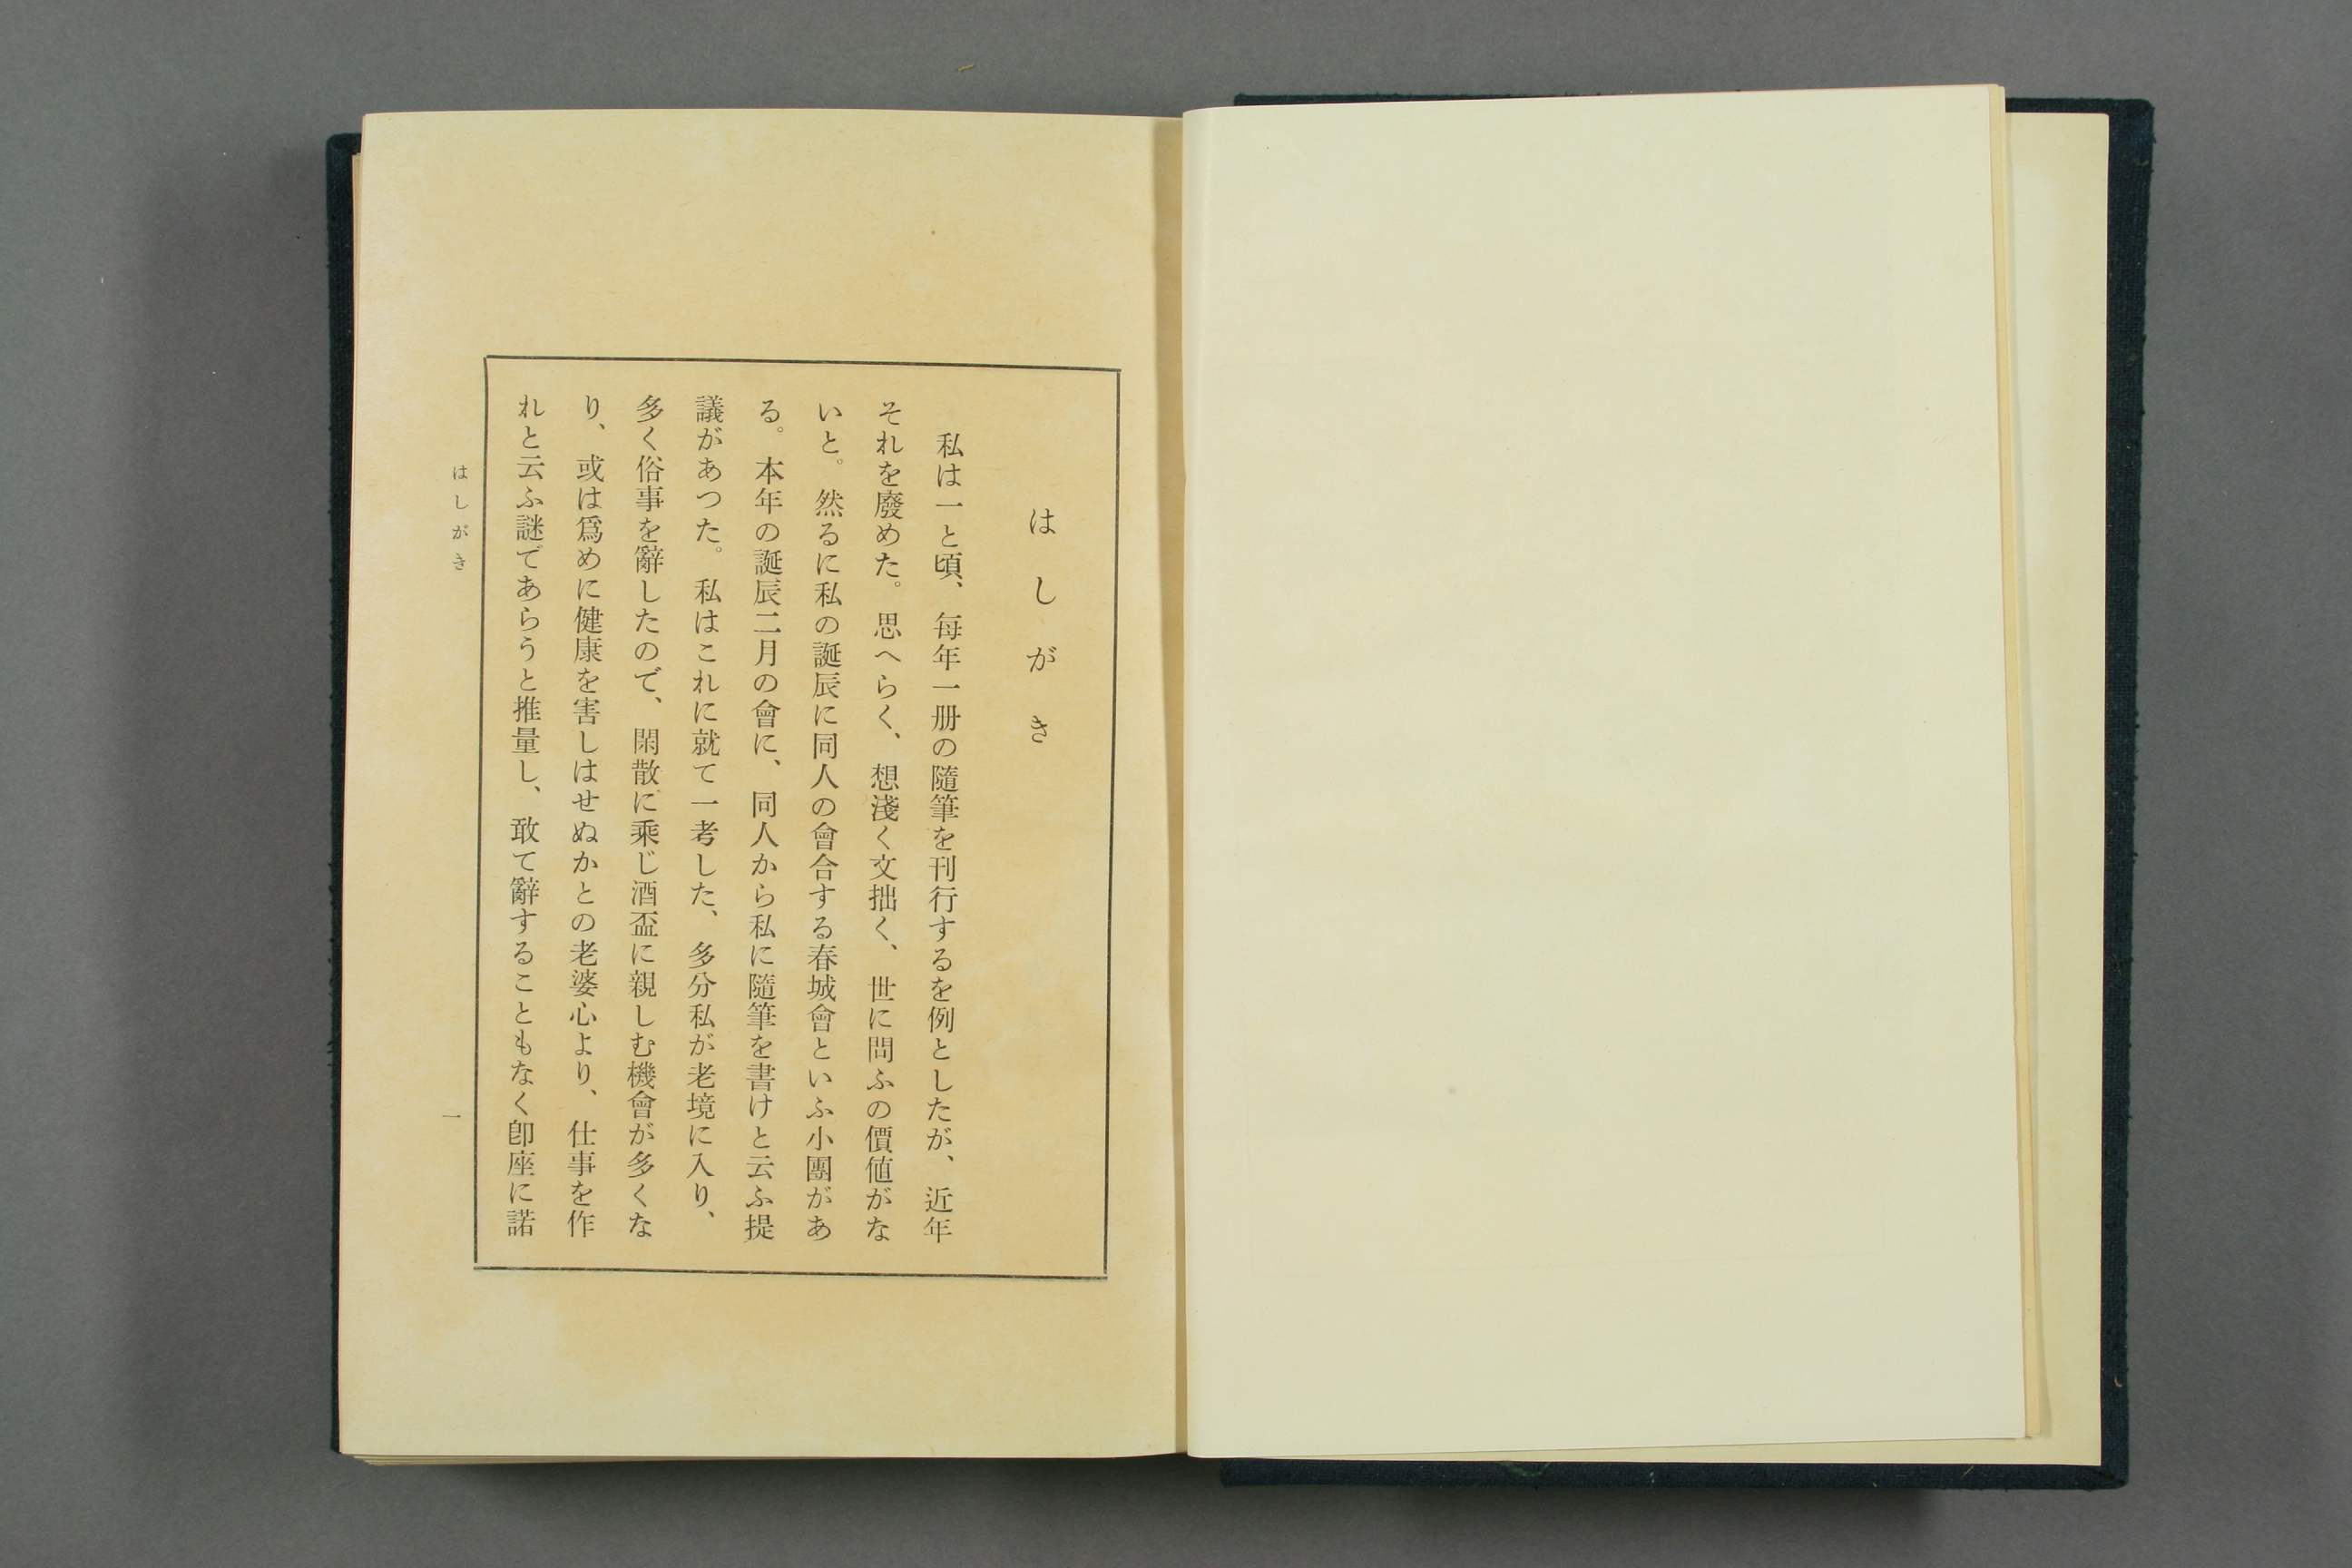 はしがき
私は一と頃、每年一册の隨筆を刊行するを例としたが、近年
それを廢めた。思へらく、想淺く文拙く、世に問ふの價値がな
いと。然るに私の誕辰に同人の會合する春城會といふ小團があ
る。本年の誕辰二月の會に、同人から私に隨筆を書けと云ふ提
議があつた。私はこれに就て一考した、多分私が老境に入り、
多く俗事を辭したので、閑散に乘じ酒盃に親しむ機會が多くな
り、或は爲めに健康を害しはせぬかとの老婆心より、仕事を作
れと云ふ謎であらうと推量し、敢て辭することもなく卽座に諾
はしがき
一